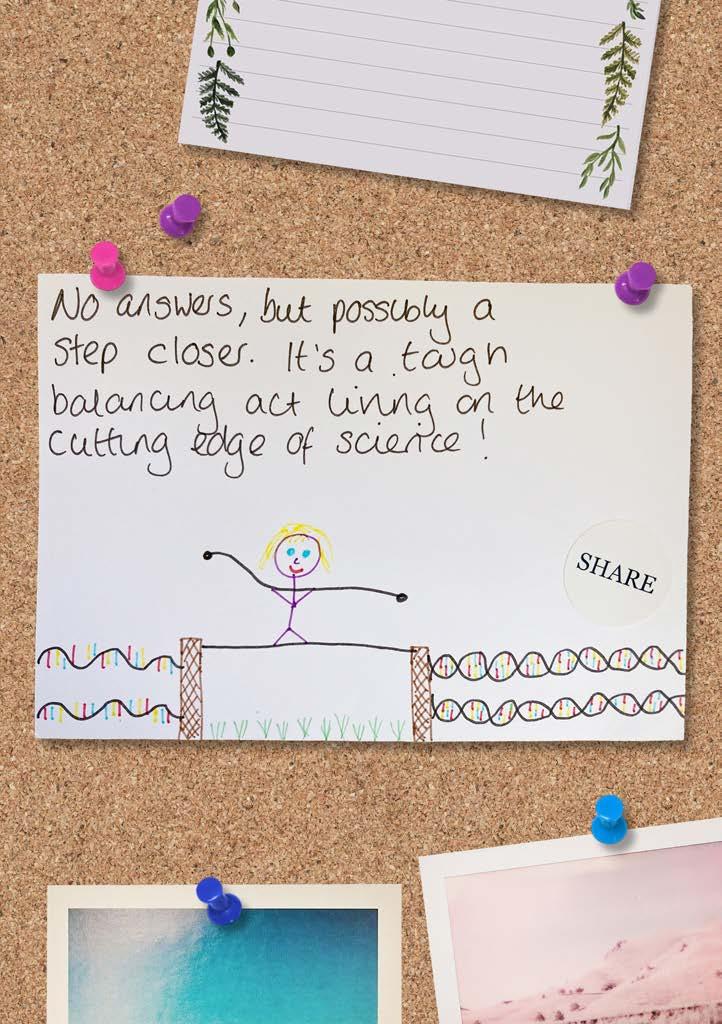 No answers, but possibly a
step closer. It's a tough
balancing act living on the
cutting edge of science!
SHARE